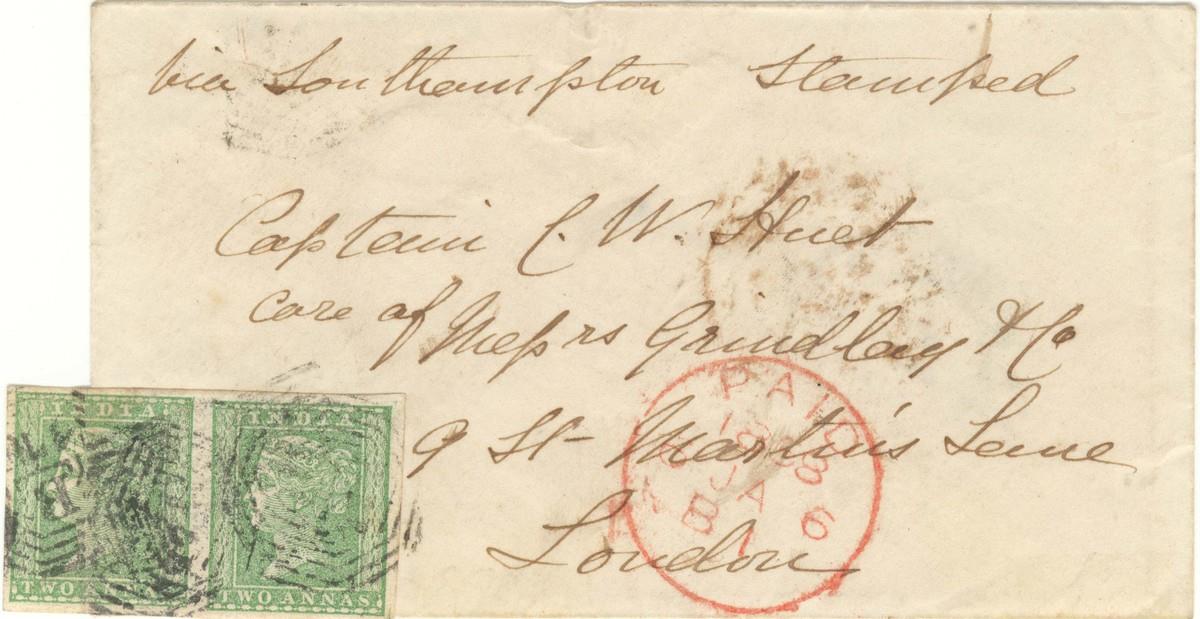 via Southampton Stamped
Captain C. W. Huet
care of Messrs Grindlay & Co
9 St Martins Lane
London
INDIA
TWO ANNAS
INDIA
TWO ANNAS
PAID
JA
6